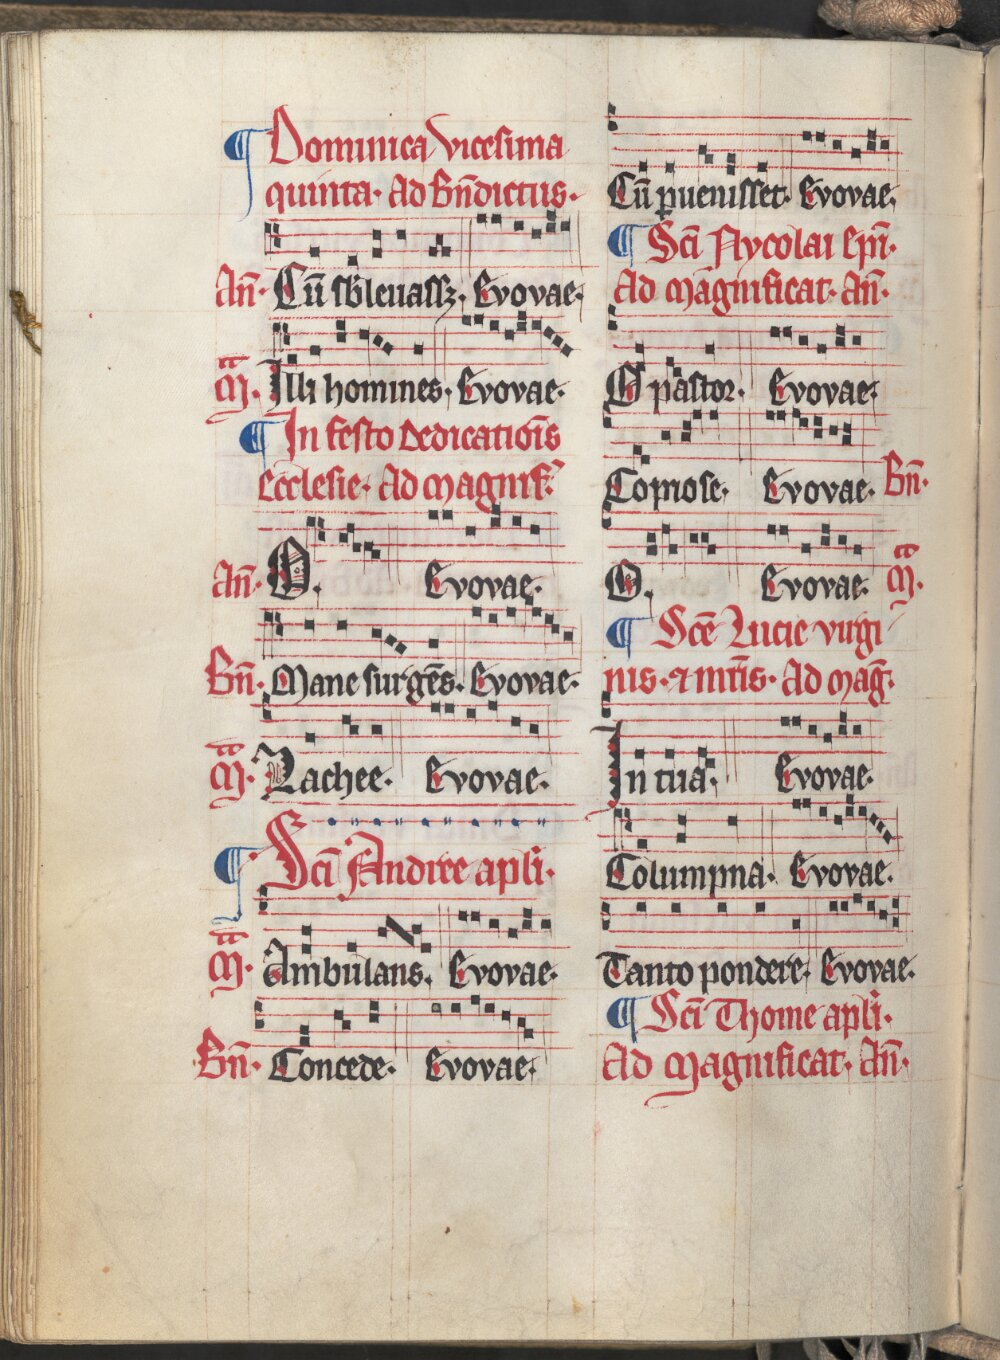 ¶ Dominica vicesima
quinta· Ad bn̄dictus·
An̄· Cū sb̓leuassꝫ· Evovae·
M̄· Illi homines· Evovae·
¶ In festo dedicatiōis
ecclesie· Ad magnif̓·
An̄· O· Evovae·
Bn̄· Mane surgēs· Evovae·
M̄· Zachee· Evovae·
¶ Sc̄i Andree apl̓i·
M̄· Ambulans· Evovae·
Bn̄· Concede· Evovae·
Cū ꝑuenisset· Evovae·
¶ Sc̄i Nycolai ep̄i·
Ad magnificat· An̄·
O pastor· Evovae·
Copiose· Evovae· Bn̄·
O· Evovae· M̄·
¶ Sc̄e Lucie virgi
nis· ⁊ mr̄is· Ad mag̓·
In tua· Evovae·
Columpna· Evovae·
Tanto pondere· Evovae·
¶ Sc̄i Thome apl̓i·
Ad magnificat· An̄·